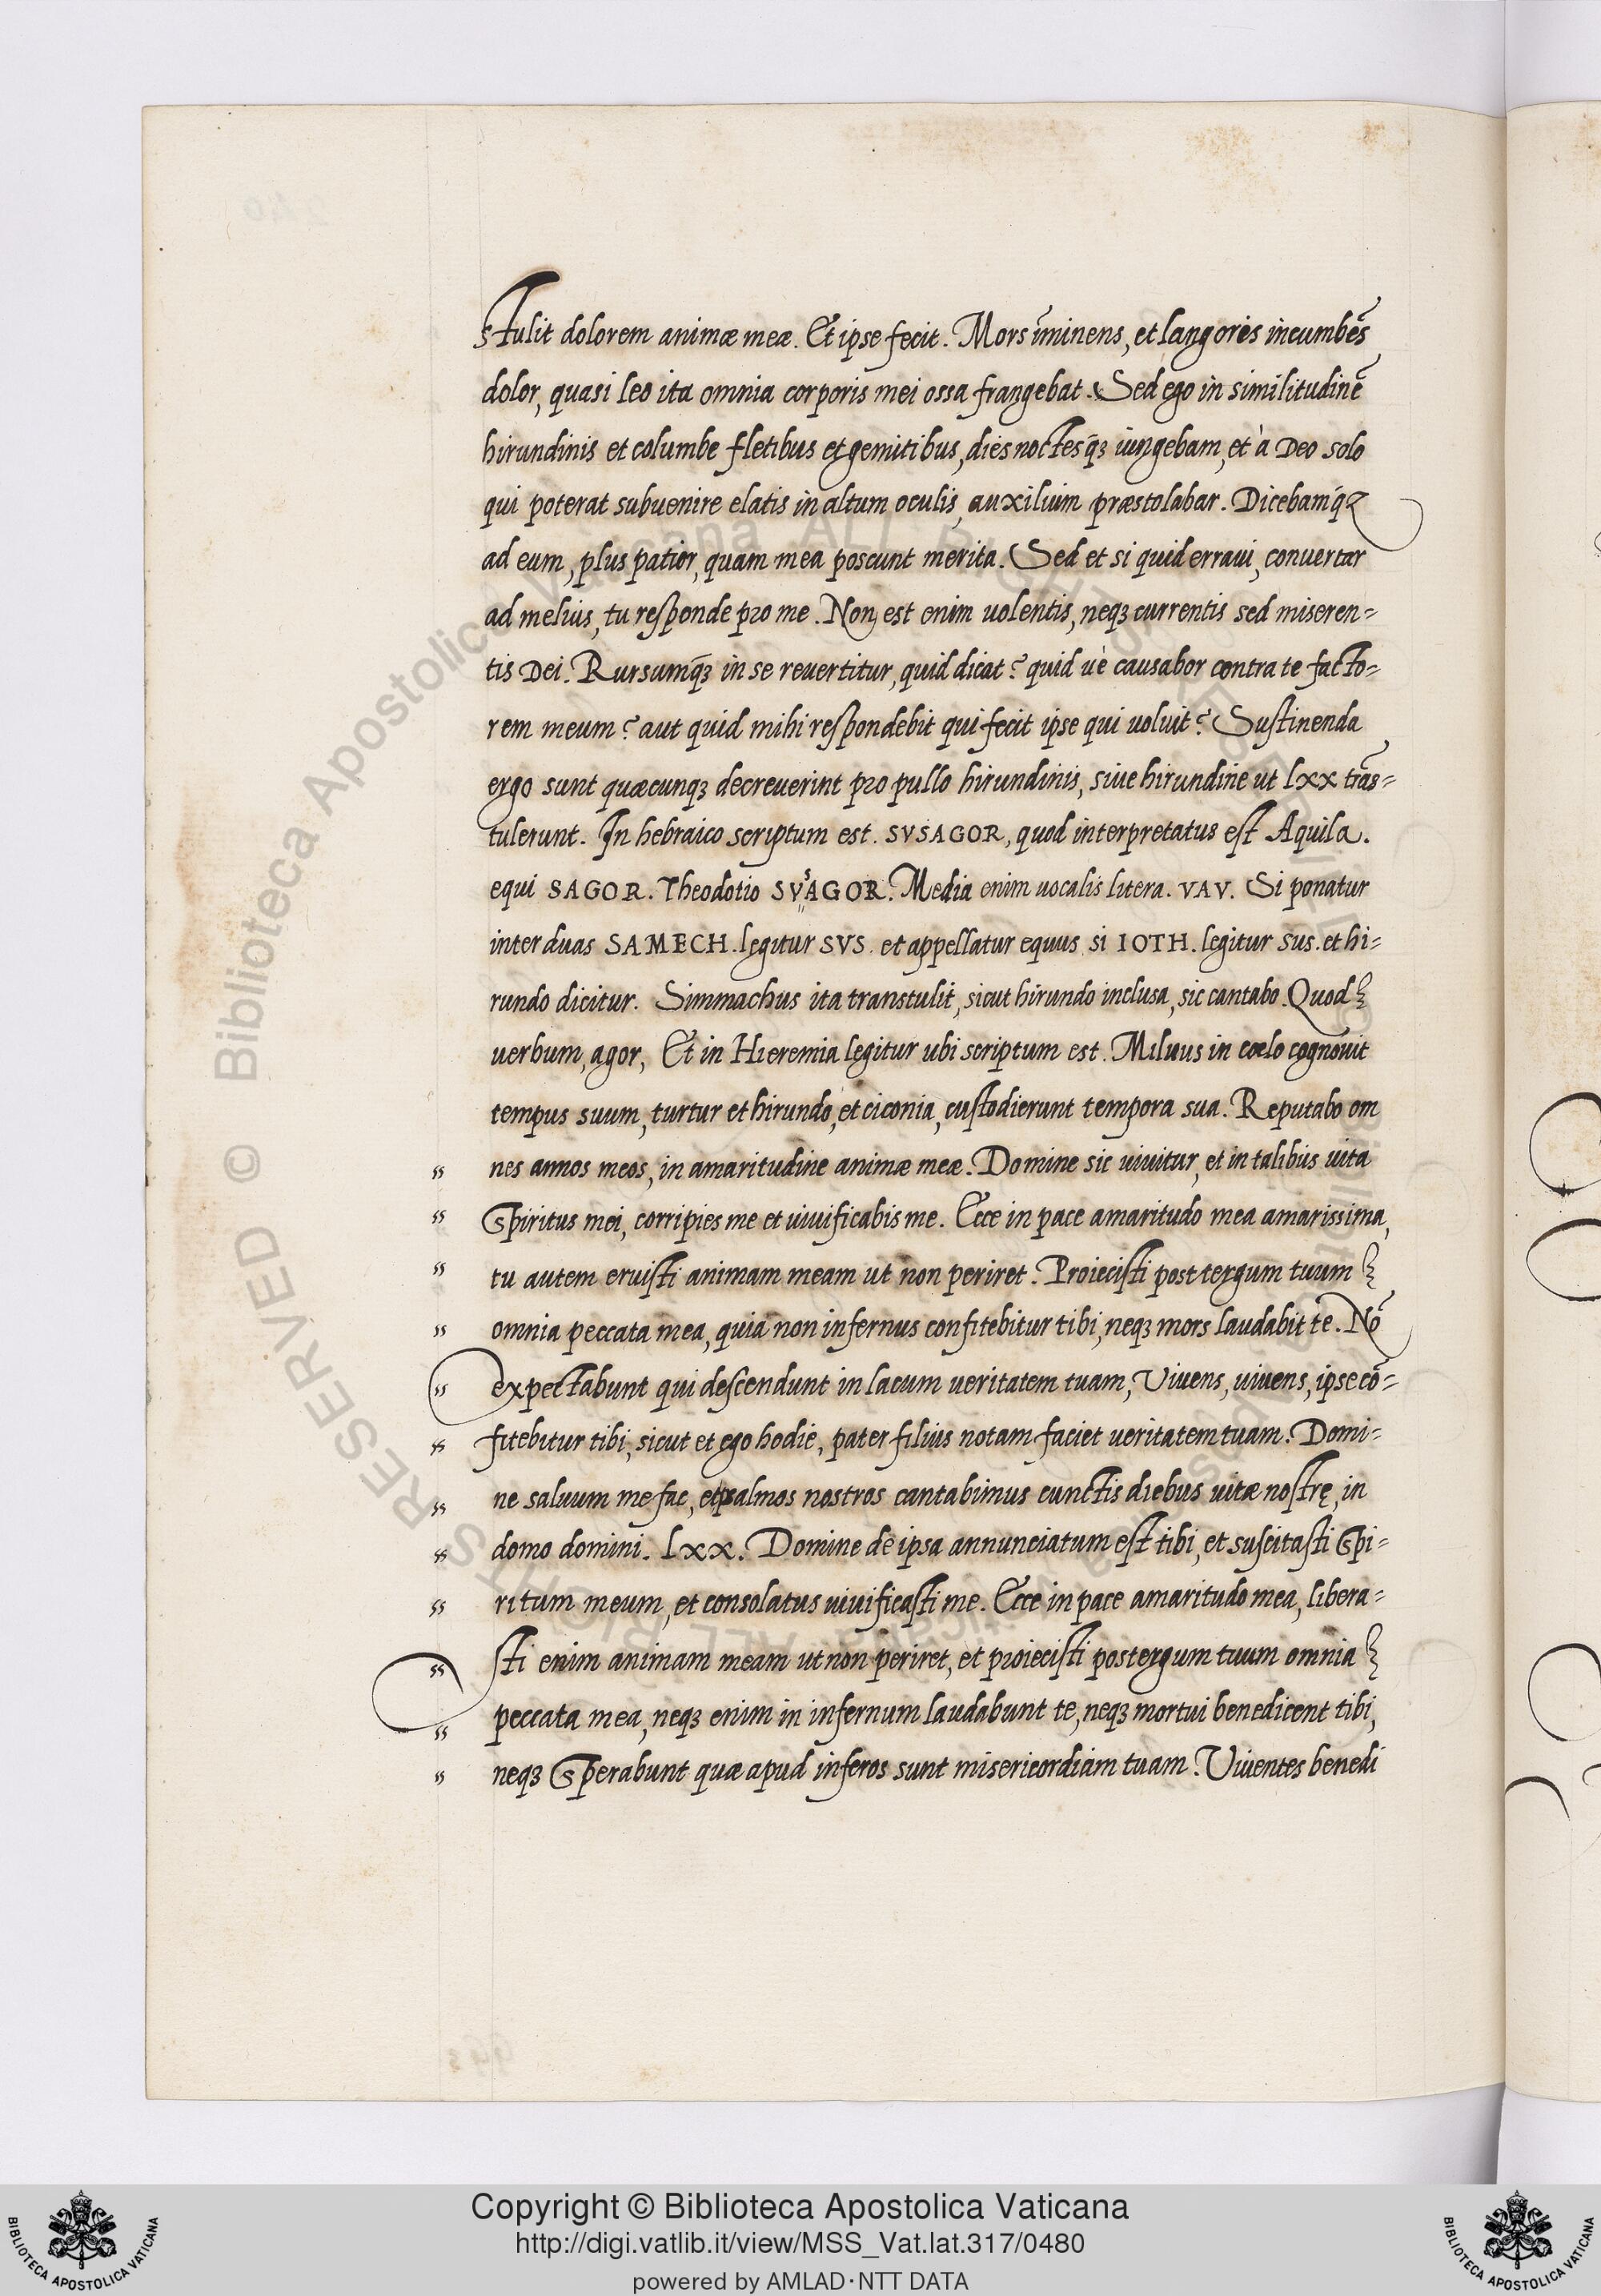 stulit dolorem animæ meæ. Et ipse fecit. Mors īminens, et langoris incumbēs
dolor, quasi leo ita omnia corporis mei ossa frangebat. Sed ego in similitudinē
hirundinis et columbe fletibus et gemitibus, dies noctesq̄ꝫ iungebam, et à Deo solo
qui poterat subuenire elatis in altum oculis, auxilium præstolabar. Dicebamq́ꝫ
ad eum, plus patior, quam mea poscunt merita. Sed et si quid erraui, conuertar
ad melius, tu responde pro me. Non est enim uolentis, neqꝫ currentis sed miseren=
tis Dei. Rursumq̄ꝫ in se reuertitur, quid dicat? quid uè causabor contra te facto=
rem meum? aut quid mihi respondebit qui fecit ipse qui uoluit? Sustinenda
ergo sunt quæcunqꝫ decreuerint pro pullo hirundinis, siue hirundine ut lxx trās=
tulerunt. In hebraico scriptum est. SVSAGOR, quod interpretatus est Aquila.
equi SAGOR. Theodotio SVSAGOR. Media enim uocalis litera. VAV. Si ponatur
inter duas SAMECH. legitur SVS. et appellatur equus si IOTH. legitur sus. et hi=
rundo dicitur. Simmachus ita transtulit, sicut hirundo inclusa, sic cantabo. Quod
uerbum, agor, Et in Hieremia legitur ubi scriptum est. Miluus in cœlo cognouit
tempus suum, turtur et hirundo, et ciconia, custodierunt tempora sua. Reputabo om
nes annos meos, in amaritudine animæ meæ. Domine sic uiuitur, et in talibus uita
Spiritus mei, corripies me et uiuificabis me. Ecce in pace amaritudo mea amarissima,
tu autem eruisti animam meam ut non periret. Proiecisti post tergum tuum
omnia peccata mea, quia non infernus confitebitur tibi, neqꝫ mors laudabit te. Nō
expectabunt qui descendunt in lacum ueritatem tuam, Viuens, uiuens, ipse cō=
fitebitur tibi, sicut et ego hodie, pater filius notam faciet ueritatem tuam. Domi=
ne saluum me fac, et psalmos nostros cantabimus cunctis diebus uitæ nostrę, in
domo domini. Lxx. Domine de ipsa annunciatum est tibi, et suscitasti Spi=
ritum meum, et consolatus uiuificasti me. Ecce in pace amaritudo mea, libera=
sti enim animam meam ut non periret, et proiecisti postergum tuum omnia
peccata mea, neqꝫ enim in infernum laudabunt te, neqꝫ mortui benedicent tibi,
neqꝫ Sperabunt quæ apud inferos sunt misericordiam tuam. Viuentes benedi
Copyright © Biblioteca Apostolica Vaticana
http://digi.vatlib.it/view/MSS_Vat.lat.317/0480
powered by AMLAD·NTT DATA
BIBLIOTECA APOSTOLICA VATICANA
BIBLIOTECA APOSTOLICA VATICANA